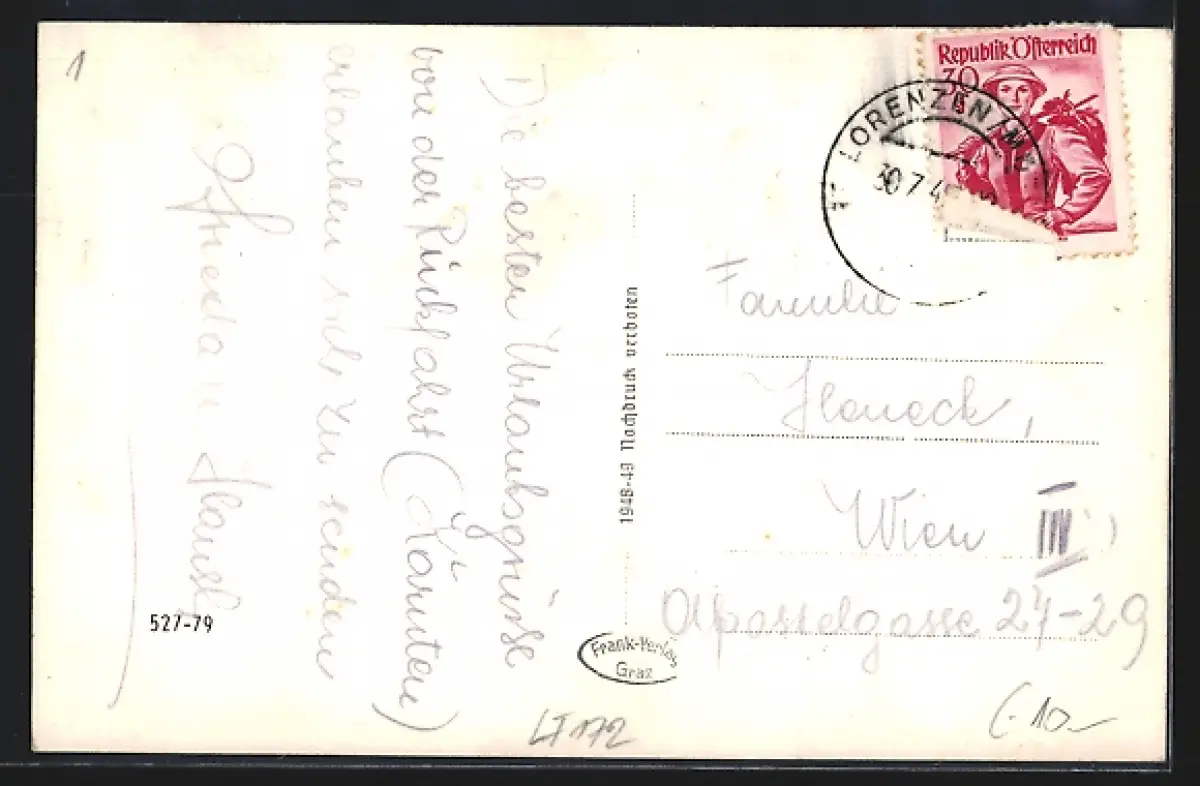 1
Die besten Urlaubsgrüsse
von der Rückfahrt (Kärnten)
erlauben sich zu senden
Frieda u. Hansl
527-79
1948-49 Nachdruck verboten
Frank-Verlag
Graz
LT 172
Republik Österreich
30
LORENZEN/M
30 7 4
Familie
Haneck,
Wien III
Apostelgasse 27-29
10-